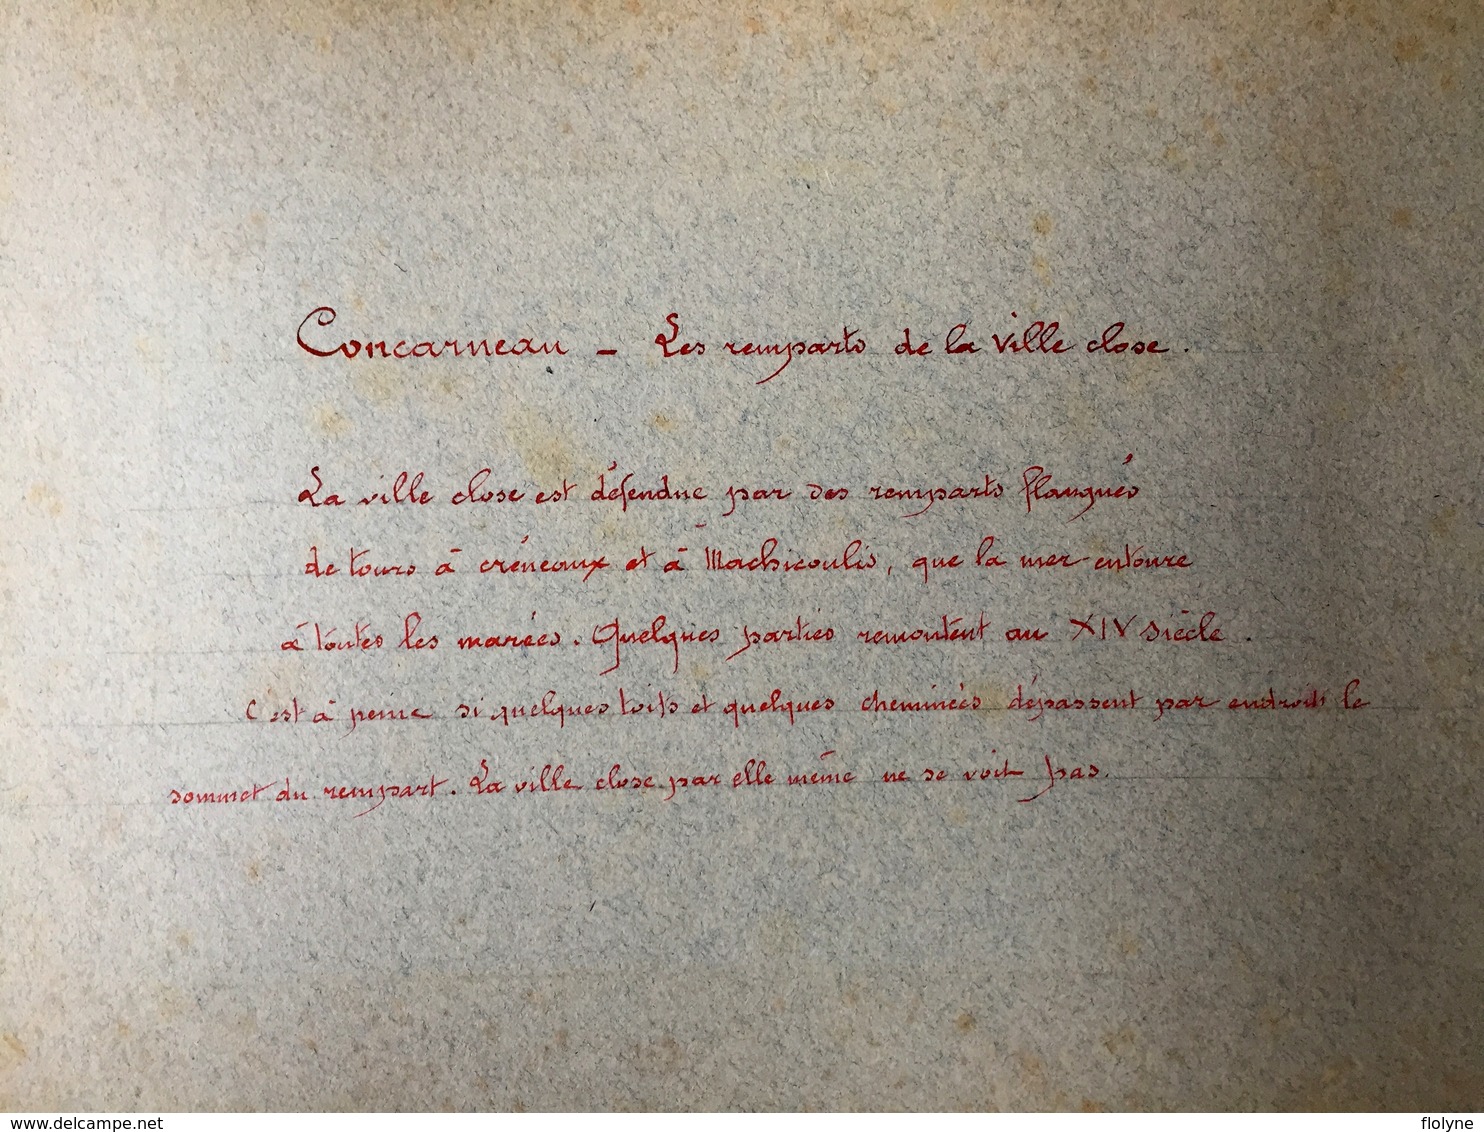 Concarneau - Les remparts de la ville close.
La ville close est défendue par des remparts flanqués
de tours à créneaux et à Machicoulis, que la mer entoure
à toutes les marées. Quelques parties remontent au XIV siècle.
C'est à peine si quelques toits et quelques cheminées dépassent par endroits le
sommet du rempart. La ville close par elle même ne se voit pas.
www.delcampe.net
flolyne